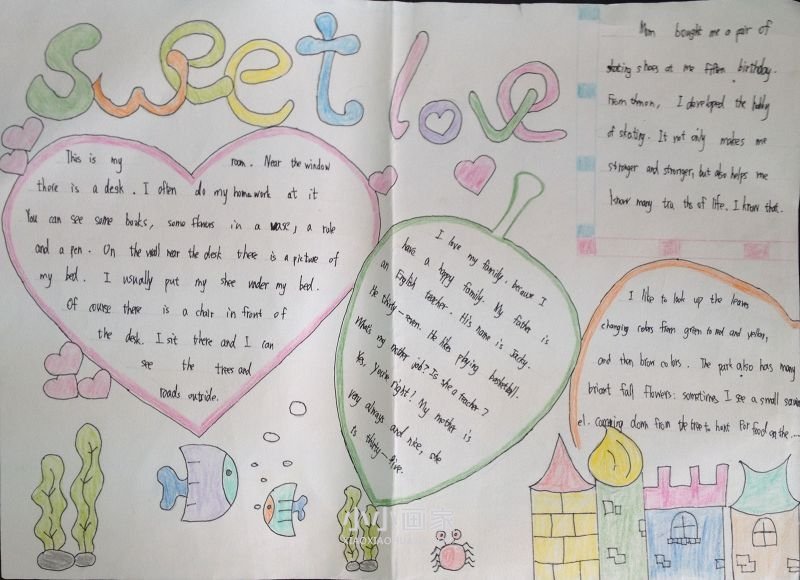 sweet love
This is my room. Near the window
there is a desk. I often do my homework at it
You can see some books, some flowers in a vase, a rule
and a pen. On the wall near the desk there is a picture of
my bed. I usually put my shee under my bed.
Of course there is a chair in front of
the desk. I sit there and I can
see the trees and
roads outside.
I love my family, because I
have a happy family. My father is
an English teacher. His name is Jacky.
He thirty-seven. He likes playing basketball.
What's my mother job? Is she a teacher?
Yes, you're right! My mother is
very always and nice, she
is thirty-five.
Mom bought me a pair of
skating shoes at me fiften birthday.
From thmon, I developed the hobby
of skating. It not only makes me
stronger and stronger, but also helps me
know many tru ths of life. I know that.
I like to look up the leaves
changing colors from green to red and yellon,
and then brown colors. The park also has many
briant fall flowers: sometimes I see a small
el. comming down from the tree to hunt for food on the....
小小画家
XIAOXIAO